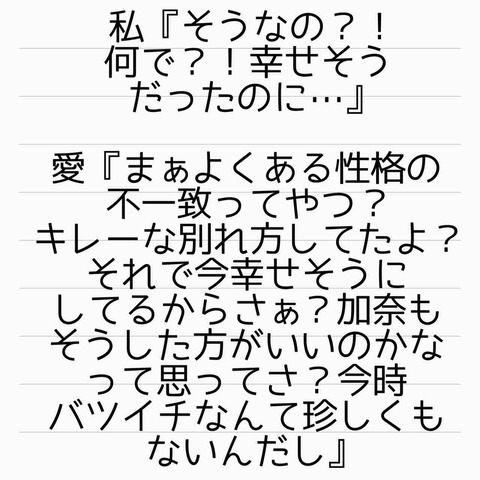 私『そうなの？！
何で？！幸せそう
だったのに…』
愛『まぁよくある性格の
不一致ってやつ？
キレーな別れ方してたよ？
それで今幸せそうに
してるからさぁ？加奈も
そうした方がいいのかな
って思ってさ？今時
バツイチなんて珍しくも
ないんだし』